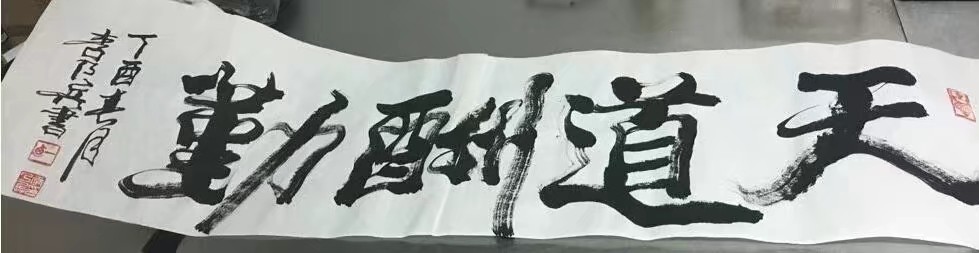 天道酬勤
丁酉春月
書